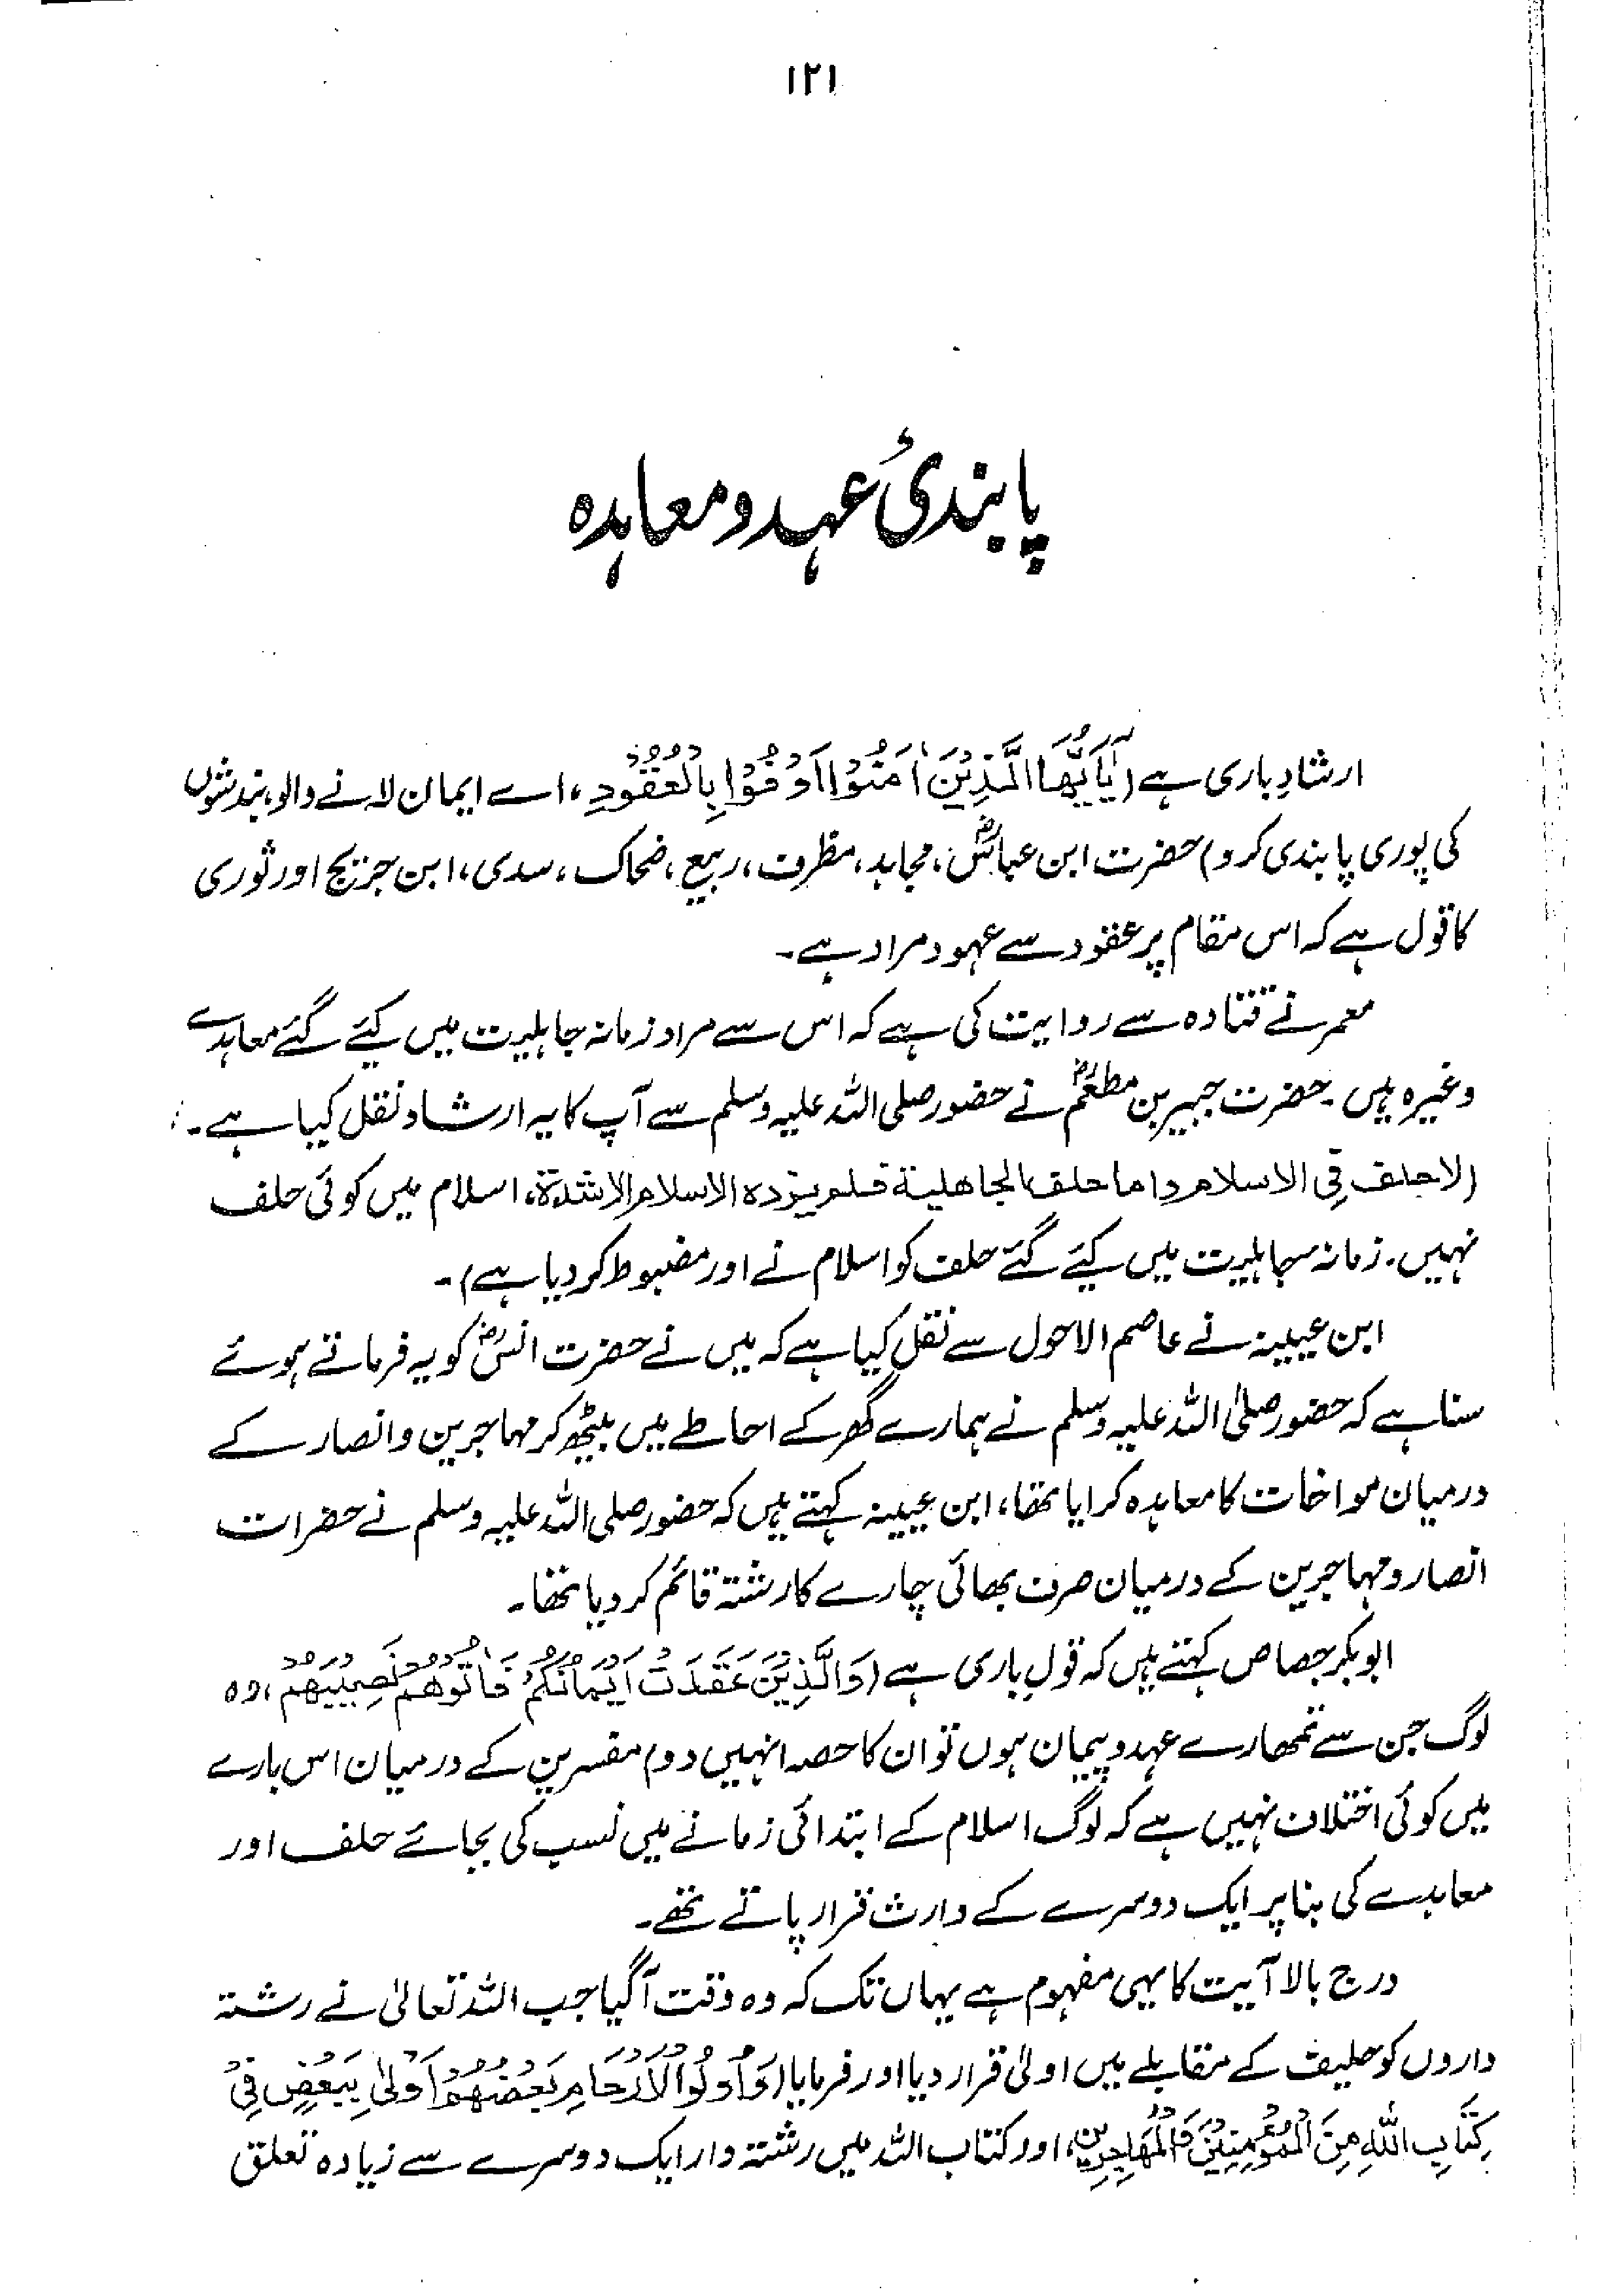 ۱۲۱
پابندیٔ عہد و معاہدہ
ارشادِ باری ہے (يٰٓاَيُّهَا الَّذِيْنَ اٰمَنُوْا اَوْفُوْا بِالْعُقُوْدِ، اے ایمان لانے والو، بندشوں
کی پوری پابندی کرو) حضرت ابن عباسؓ، مجاہد، مطرف، ربیع، ضحاک، سدی، ابن جریج اور ثوری
کا قول ہے کہ اس مقام پر عقود سے عہود مراد ہے۔
معمر نے قتادہ سے روایت کی ہے کہ اس سے مراد زمانہ جاہلیت میں کیئے گئے معاہدے
وغیرہ ہیں۔ حضرت جبیر بن مطعمؓ نے حضور صلی اللہ علیہ وسلم سے آپ کا یہ ارشاد نقل کیا ہے۔
(لا حلف فی الاسلام واما حلف الجاھلیة فلم یزده الاسلام الا شدة، اسلام میں کوئی حلف
نہیں۔ زمانہ جاہلیت میں کیئے گئے حلف کو اسلام نے اور مضبوط کر دیا ہے)۔
ابن عیینہ نے عاصم الاحول سے نقل کیا ہے کہ میں نے حضرت انسؓ کو یہ فرماتے ہوئے
سنا ہے کہ حضور صلیٰ اللہ علیہ وسلم نے ہمارے گھر کے احاطے میں بیٹھ کر مہاجرین و انصار کے
درمیان مواخات کا معاہدہ کرایا تھا، ابن عیینہ کہتے ہیں کہ حضور صلی اللہ علیہ وسلم نے حضرات
انصار و مہاجرین کے درمیان صرف بھائی چارے کا رشتہ قائم کر دیا تھا۔
ابو بکر جصاص کہتے ہیں کہ قولِ باری ہے (وَالَّذِيْنَ عَقَدَتْ اَيْمَانُكُمْ فَاٰتُوْهُمْ نَصِيْبَهُمْ، وہ
لوگ جن سے تمھارے عہد و پیمان ہوں تو ان کا حصہ انہیں دو) مفسرین کے درمیان اس بارے
میں کوئی اختلاف نہیں ہے کہ لوگ اسلام کے ابتدائی زمانے میں نسب کی بجائے حلف اور
معاہدے کی بنا پر ایک دوسرے کے وارث قرار پاتے تھے۔
درج بالا آیت کا یہی مفہوم ہے یہاں تک کہ وہ وقت آگیا جب اللہ تعالیٰ نے رشتہ
داروں کو حلیف کے مقابلے میں اولیٰ قرار دیا اور فرمایا (وَاُولُوا الْاَرْحَامِ بَعْضُهُمْ اَوْلٰى بِبَعْضٍ فِيْ
كِتَابِ اللّٰهِ مِنَ الْمُؤْمِنِيْنَ وَالْمُهَاجِرِيْنَ، اور کتاب اللہ میں رشتہ دار ایک دوسرے سے زیادہ تعلق